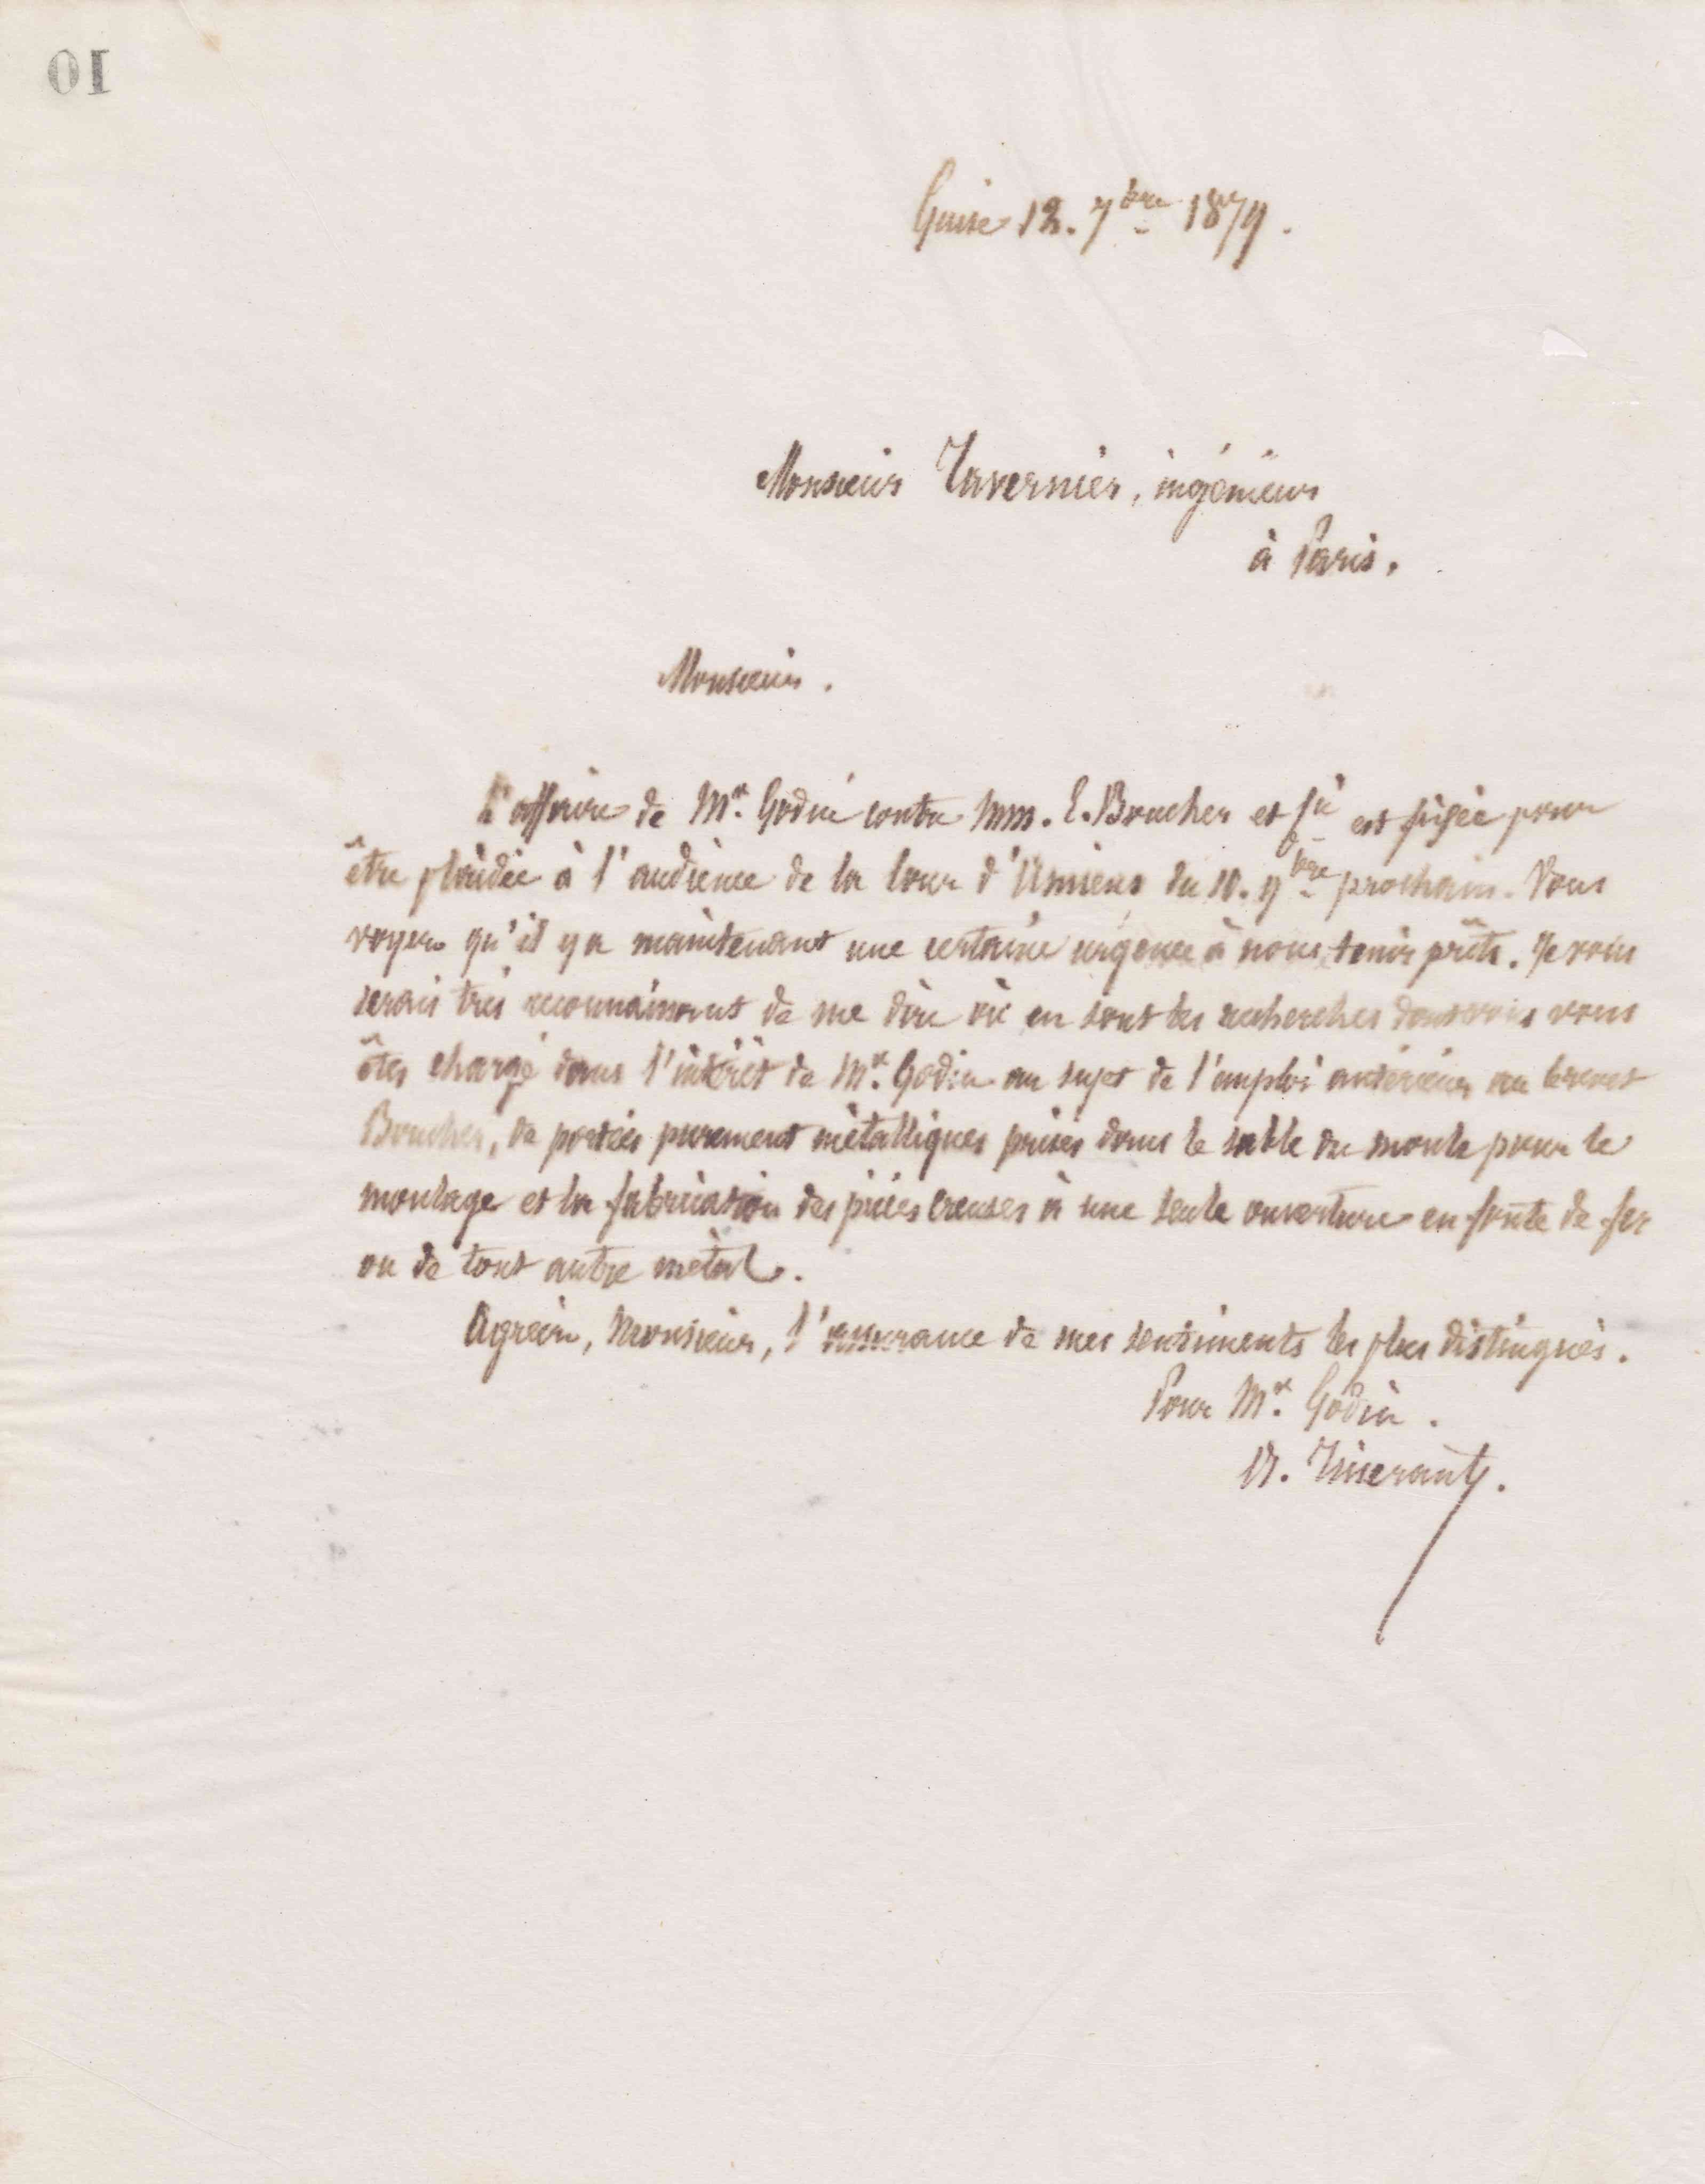 10
Guise 12. 7bre 1879.
Monsieur Tavernier, ingénieur
à Paris.
Monsieur.
L'affaire de Mr. Godin contre MM. E. Boucher et Cie est fixée pour
être plaidée à l'audience de la Cour d'Amiens du 10. 9bre prochain. Vous
voyez qu'il y a maintenant une certaine urgence à nous tenir prêts. Je vous
serais très reconnaissant de me dire où en sont les recherches dont vous vous
êtes chargé dans l'intérêt de Mr. Godin au sujet de l'emploi antérieur au brevet
Boucher, de portées purement métalliques prises dans le sable du moule pour le
moulage et la fabrication des pièces creuses à une seule ouverture en fonte de fer
ou de tout autre métal.
Agréez, Monsieur, l'assurance de mes sentiments les plus distingués.
Pour Mr. Godin.